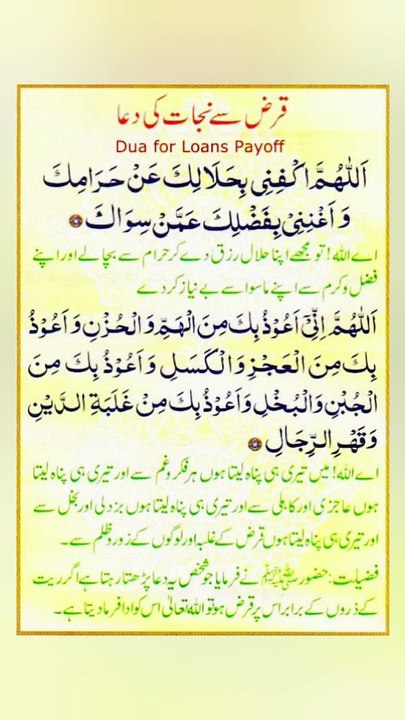 قرض سے نجات کی دعا
Dua for Loans Payoff
اَللّٰهُمَّ اكْفِنِيْ بِحَلَالِكَ عَنْ حَرَامِكَ
وَاَغْنِنِيْ بِفَضْلِكَ عَمَّنْ سِوَاكَ
اے اللہ! تو مجھے اپنا حلال رزق دے کر حرام سے بچالے اور اپنے
فضل و کرم سے اپنے ماسوا سے بے نیاز کردے
اَللّٰهُمَّ اِنِّيْ اَعُوْذُ بِكَ مِنَ الْهَمِّ وَالْحُزْنِ وَاَعُوْذُ
بِكَ مِنَ الْعَجْزِ وَالْكَسَلِ وَاَعُوْذُ بِكَ مِنَ
الْجُبْنِ وَالْبُخْلِ وَاَعُوْذُ بِكَ مِنْ غَلَبَةِ الدَّيْنِ
وَقَهْرِ الرِّجَالِ
اے اللہ! میں تیری ہی پناہ لیتا ہوں ہر فکر و غم سے اور تیری ہی پناہ لیتا
ہوں عاجزی اور کاہلی سے اور تیری ہی پناہ لیتا ہوں بزدلی اور بخل سے
اور تیری ہی پناہ لیتا ہوں قرض کے غلبہ اور لوگوں کے زور و ظلم سے۔
فضیلت: حضور ﷺ نے فرمایا جو شخص یہ دعا پڑھتا رہتا ہے اگر ریت
کے ذروں کے برابر اس پر قرض ہو تو اللہ تعالیٰ اس کو ادا فرما دیتا ہے۔